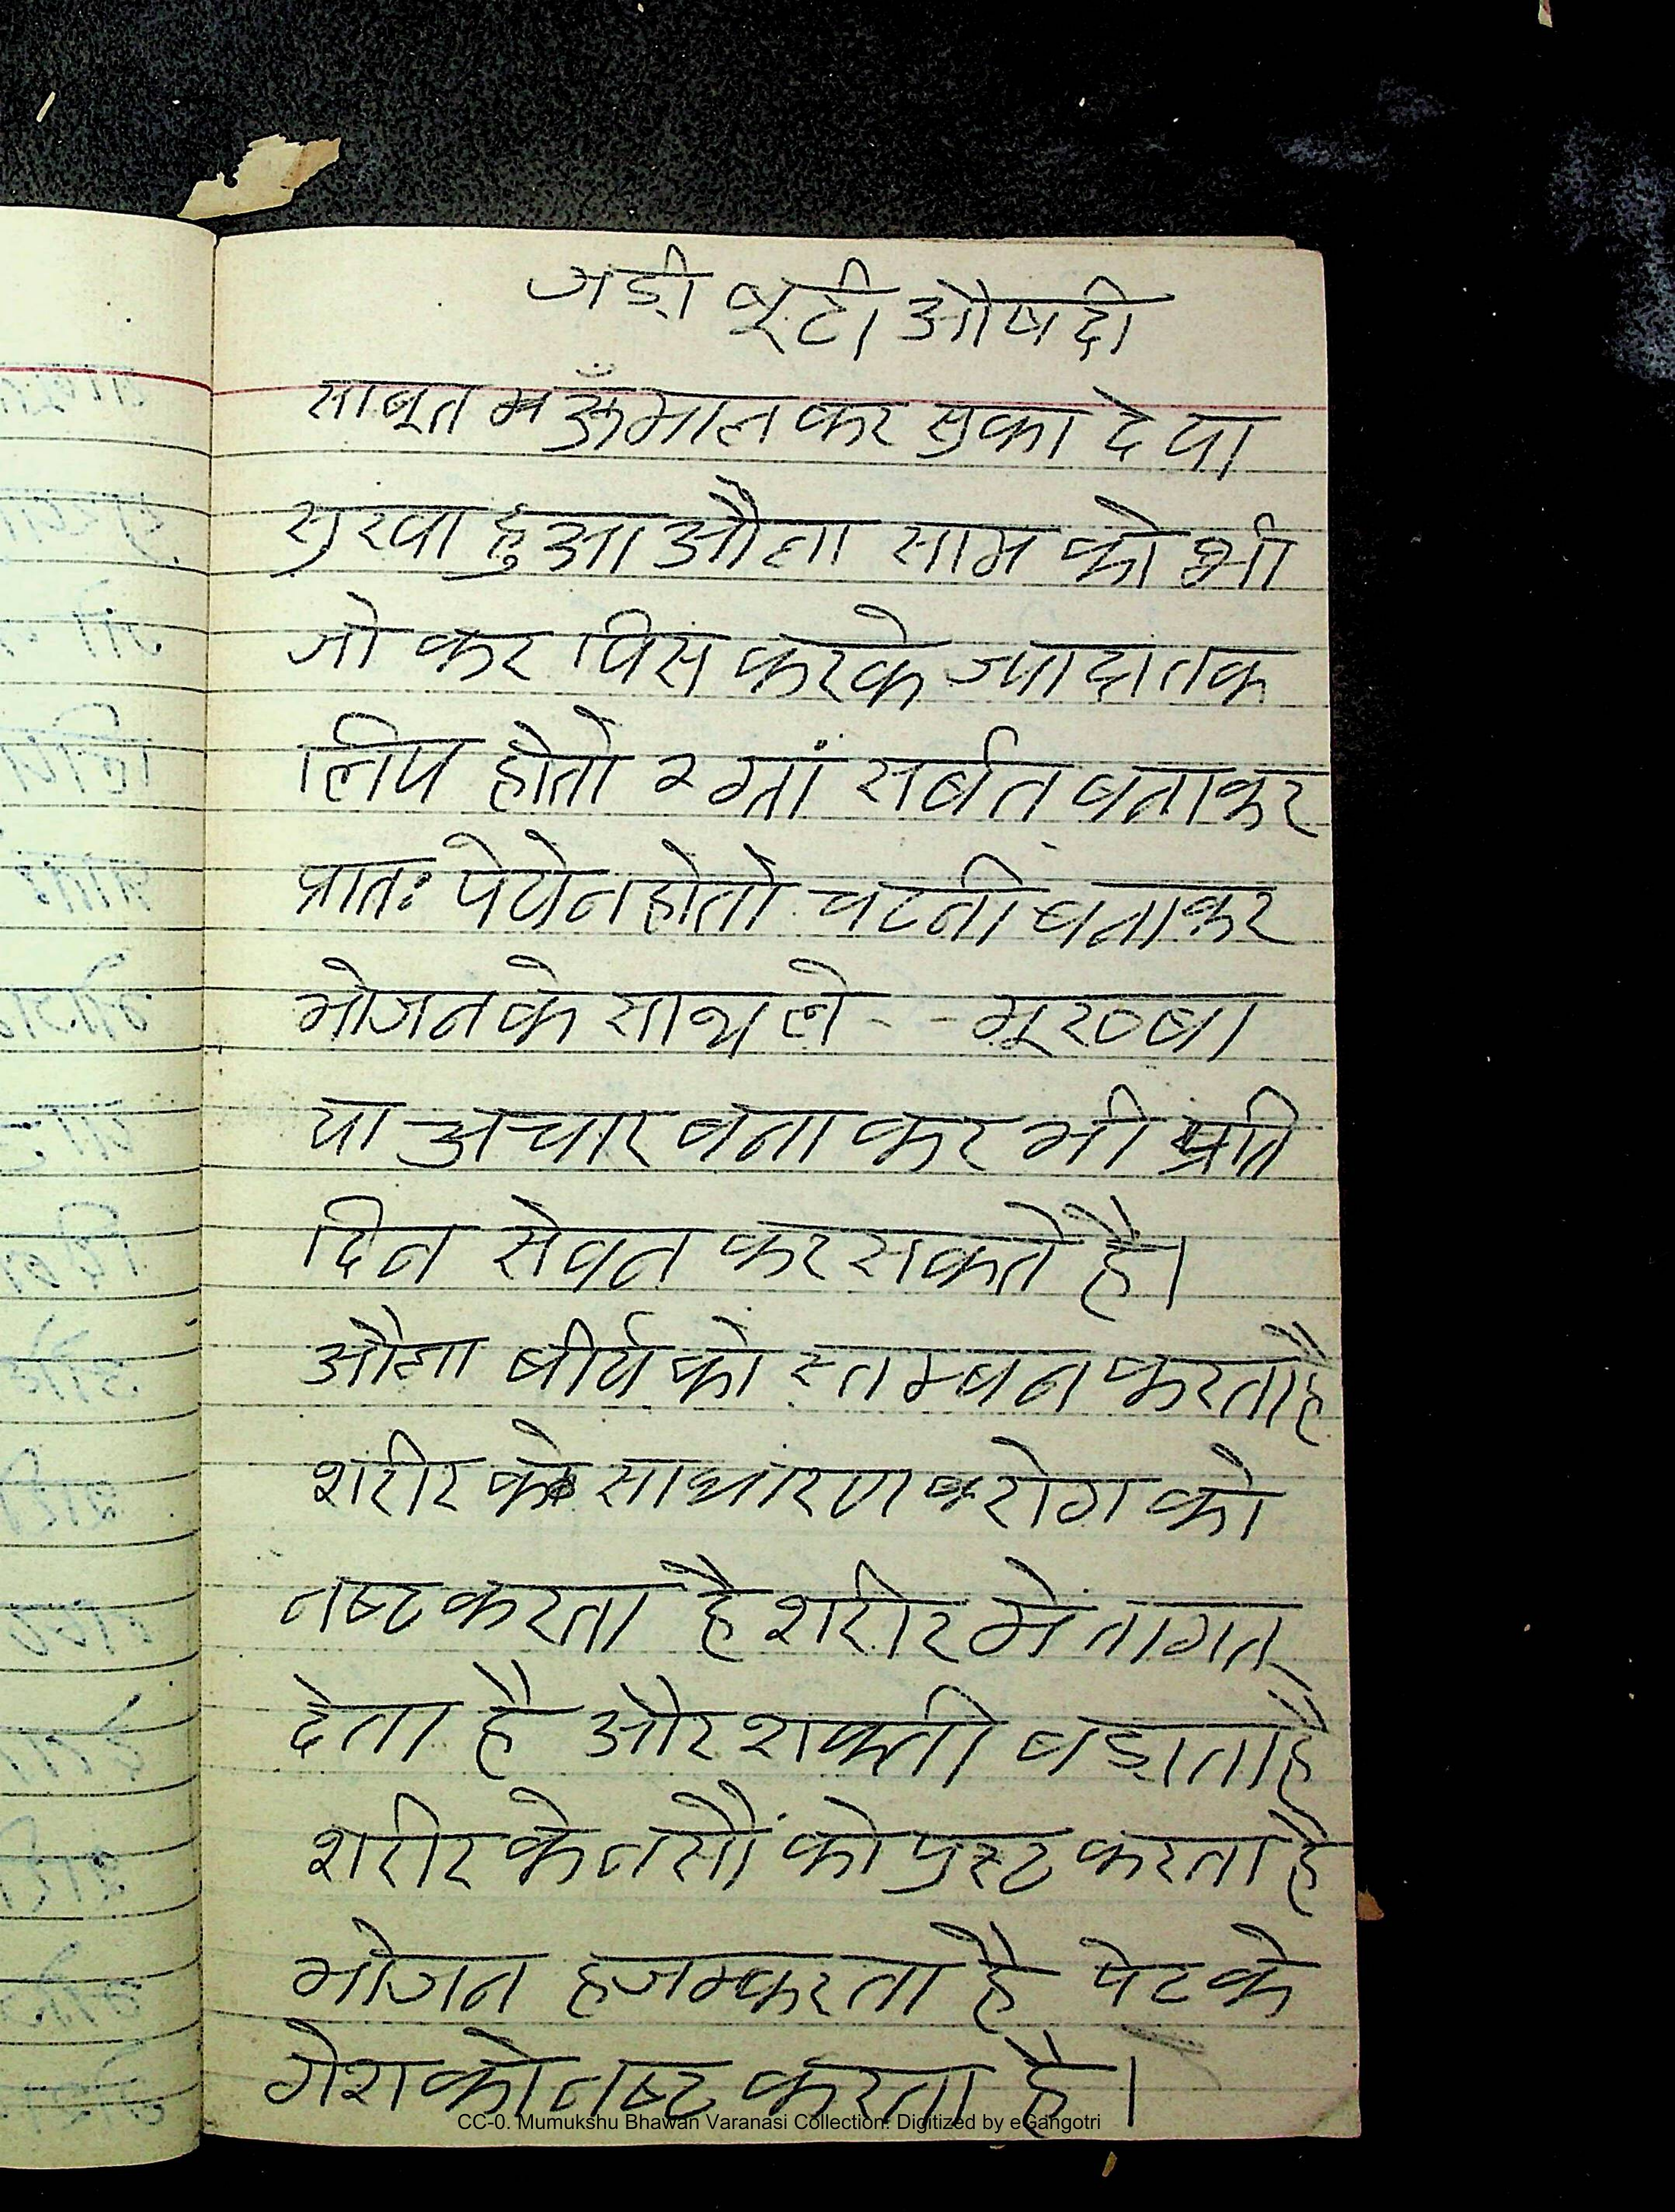 जडी बूटी औषदी
साबूत मऊँमाल कर सुका दे या
सुखा हुआ औला साम को भी
जो कर पिस करके ज्यादा तक
लिप होतो २ ग्लां सर्बत बनाकर
प्रातः पेये न होतो चटनी बनाकर
भोजन के साथ ले - - मूरव्बा
या अचार बना कर भी प्रति
दिन सेवन कर सकते है।
औला बीर्य को स्तम्बन करता है
शरीर के साधारण रोग को
नष्ट करता है शरीर में तागत
देता है और शक्ती बडाता है
शरीर के नसों को पुस्ट करता है
भोजन हजम्करता है पेट के
गेश को नष्ट करता है।
CC-0. Mumukshu Bhawan Varanasi Collection. Digitized by eGangotri